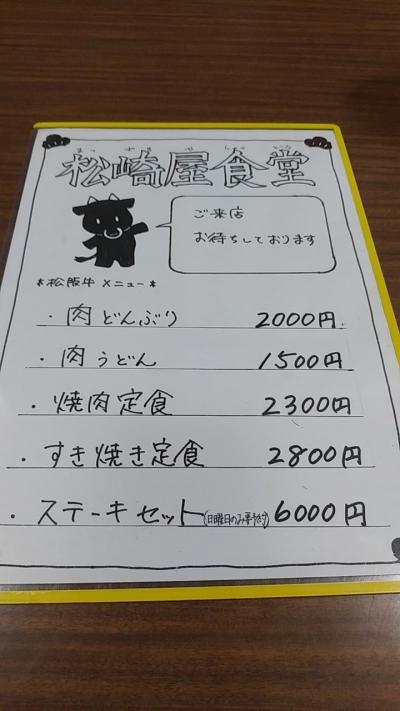 まつ さき や しょく どう
松崎屋食堂
ご来店
お待ちしております
*松阪牛メニュー*
・肉どんぶり 2000円
・肉うどん 1500円
・焼肉定食 2300円
・すき焼き定食 2800円
・ステーキセット(日曜日のみ要予約) 6000円